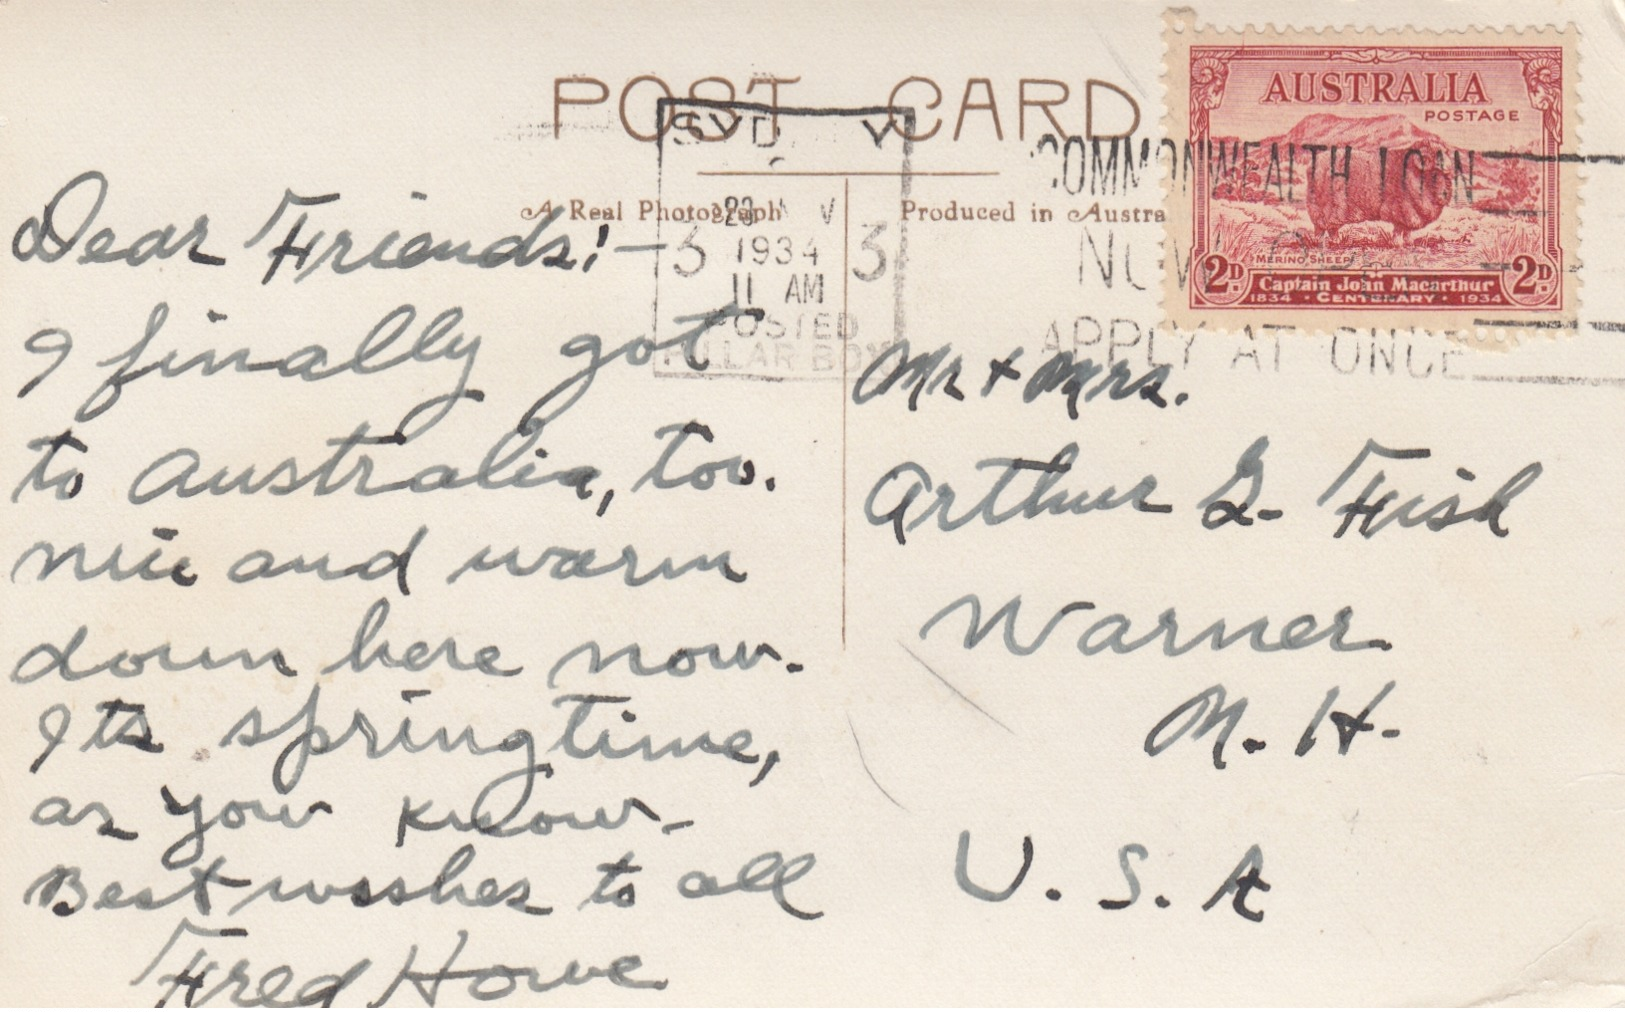 POST CARD
A Real Photograph
Produced in Austra
AUSTRALIA
POSTAGE
MERINO SHEEP
2D.
Captain John Macarthur
2D.
1834 · CENTENARY · 1934
3
1934
3
11 AM
POSTED
PILLAR BOX
COMMONWEALTH LOAN
NOW
APPLY AT ONCE
Dear Friends! —
I finally got
to Australia, too.
Nice and warm
down here now.
Its springtime,
as you know -
Best wishes to all
Fred Howe
Mr + Mrs.
Arthur G. Fish
Warner
N. H.
U. S. A